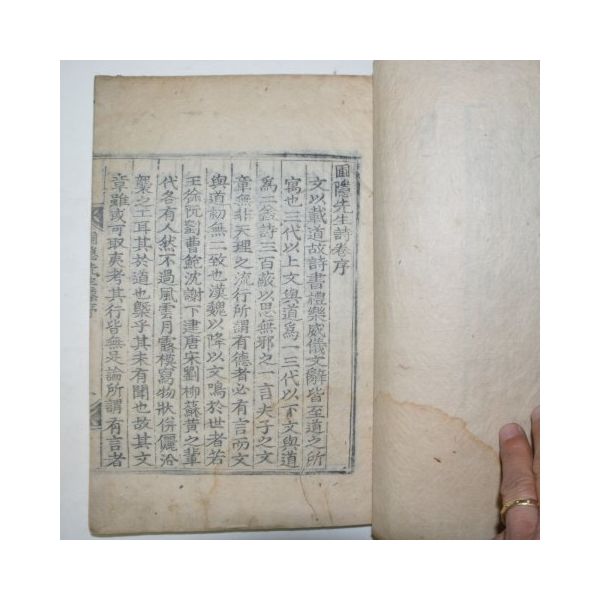 圃隱先生詩卷序
文以載道故詩書禮樂威儀文辭皆至道之所
寓也三代以上文與道爲一三代以下文與道
爲二蓋詩三百蔽以思無邪之一言夫子之文
章無非天理之流行所謂有德者必有言而文
與道初無二致也漢魏以降以文鳴於世者若
王徐阮劉曹鮑沈謝下逮唐宋劉柳蘇黃之輩
代各有人然不過風雲月露模寫物狀倂儷洽
槩之工耳其於道也槩乎其未有聞也故其文
章雖或可取夷考其行皆無是論所謂有言者